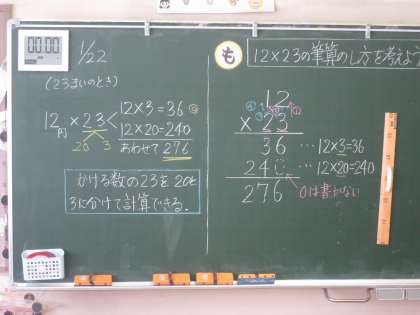 00:00
1/22
も 12×23の筆算のし方を考えよう
(23まいのとき)
12円×23<12×3=36
12×20=240
20 3
あわせて276
かける数の23を20と
3に分けて計算できる。
12
×23
36 …12×3=36
240 …12×20=240
276
0は書かない